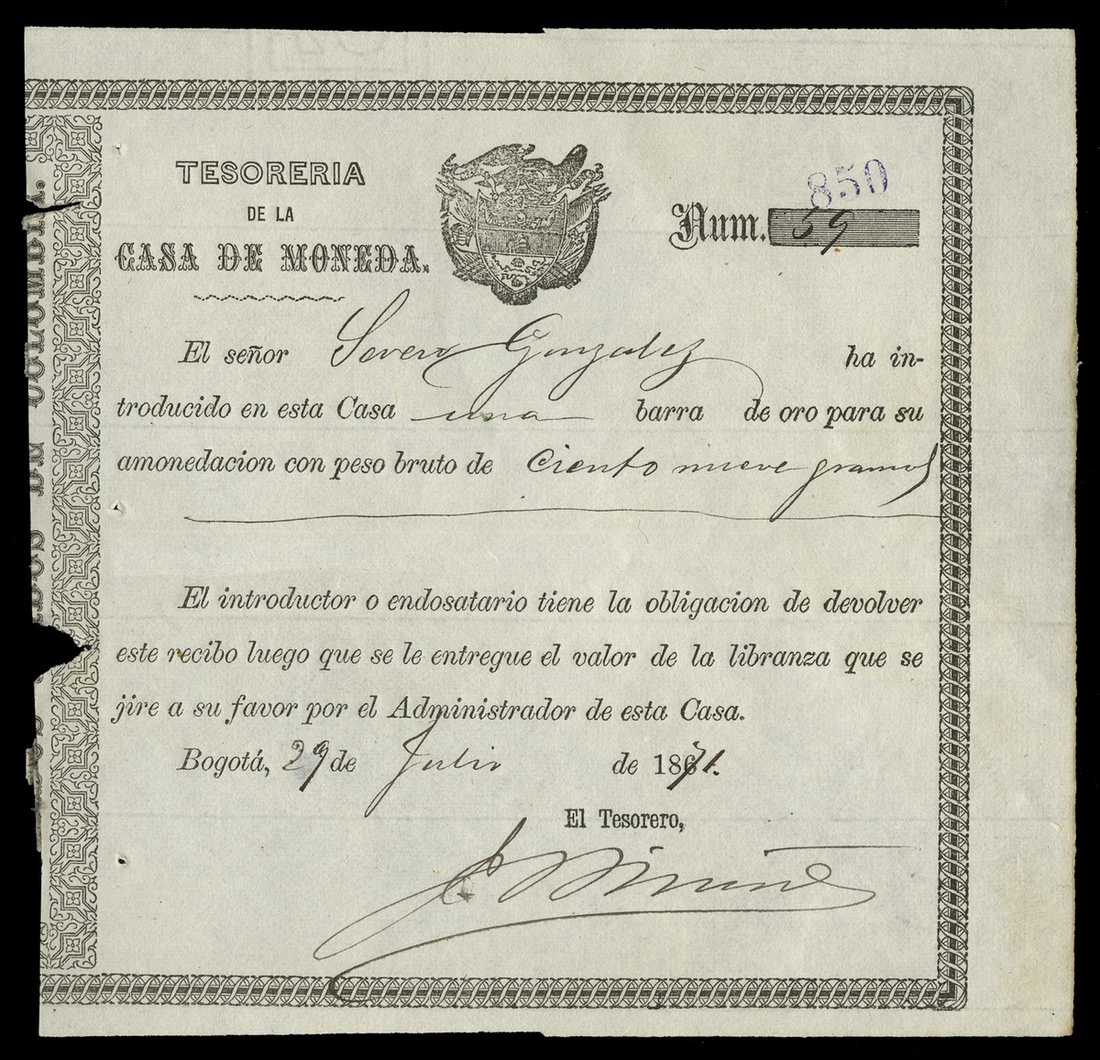 TESORERIA
DE LA
CASA DE MONEDA.
850
Num. 59
El señor Severo Gonzalez ha in-
troducido en esta Casa una barra de oro para su
amonedacion con peso bruto de Ciento nueve gramos
El introductor o endosatario tiene la obligacion de devolver
este recibo luego que se le entregue el valor de la libranza que se
jire a su favor por el Administrador de esta Casa.
Bogotá, 29 de Julio de 1871.
El Tesorero,